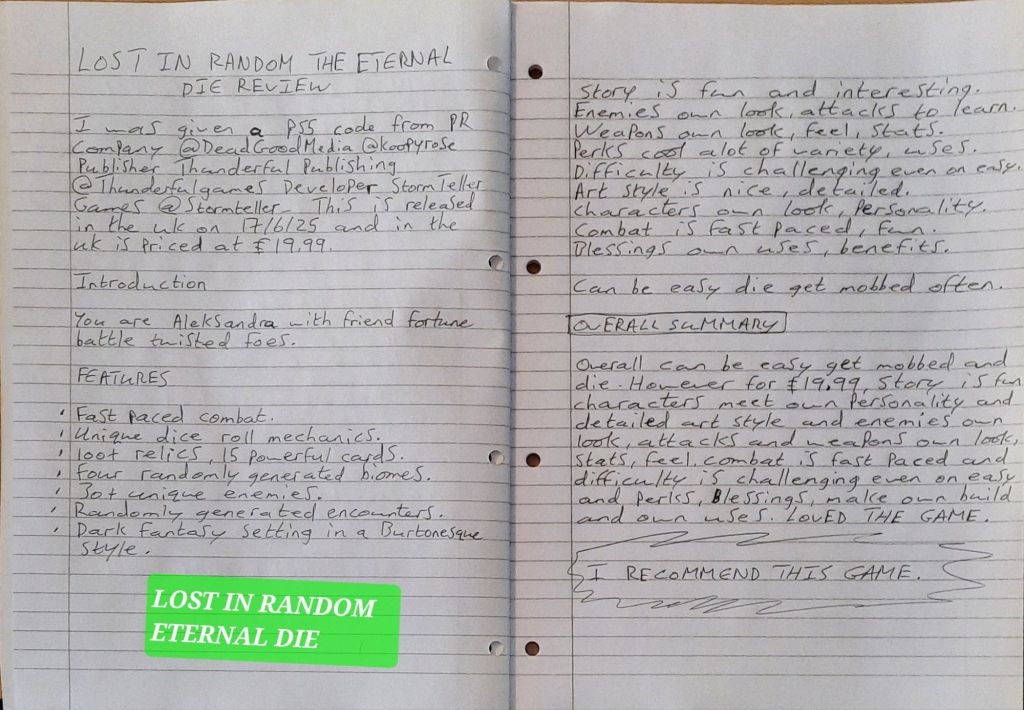 LOST IN RANDOM THE ETERNAL
DIE REVIEW
I was given a PS5 code from PR
Company @DeadGoodMedia @koopyrose
Publisher Thunderful Publishing
@Thunderfulgames Developer StormTeller
Games @Stormteller_ This is released
in the uk on 17/6/25 and in the
uk is Priced at £19.99.
Introduction
You are Aleksandra with friend fortune
battle twisted foes.
FEATURES
' Fast paced combat.
' Unique dice roll mechanics.
' 100+ relics, 15 powerful cards.
' Four randomly generated biomes.
' 30+ unique enemies.
' Randomly generated encounters.
' Dark fantasy setting in a Burtonesque
style.
LOST IN RANDOM
ETERNAL DIE
Story is fun and interesting.
Enemies own look, attacks to learn.
Weapons own look, feel, stats.
Perks cool alot of variety, uses.
Difficulty is challenging even on easy.
Art style is nice, detailed.
Characters own look, Personality.
Combat is fast paced, fun.
Blessings own uses, benefits.
Can be easy die get mobbed often.
OVERALL SUMMARY
Overall can be easy get mobbed and
die. However for £19.99, Story is fun
characters meet own Personality and
detailed art style and enemies own
look, attacks and weapons own look,
stats, feel. combat is fast paced and
difficulty is challenging even on easy
and perks, Blessings, make own build
and own uses. LOVED THE GAME.
I RECOMMEND THIS GAME.